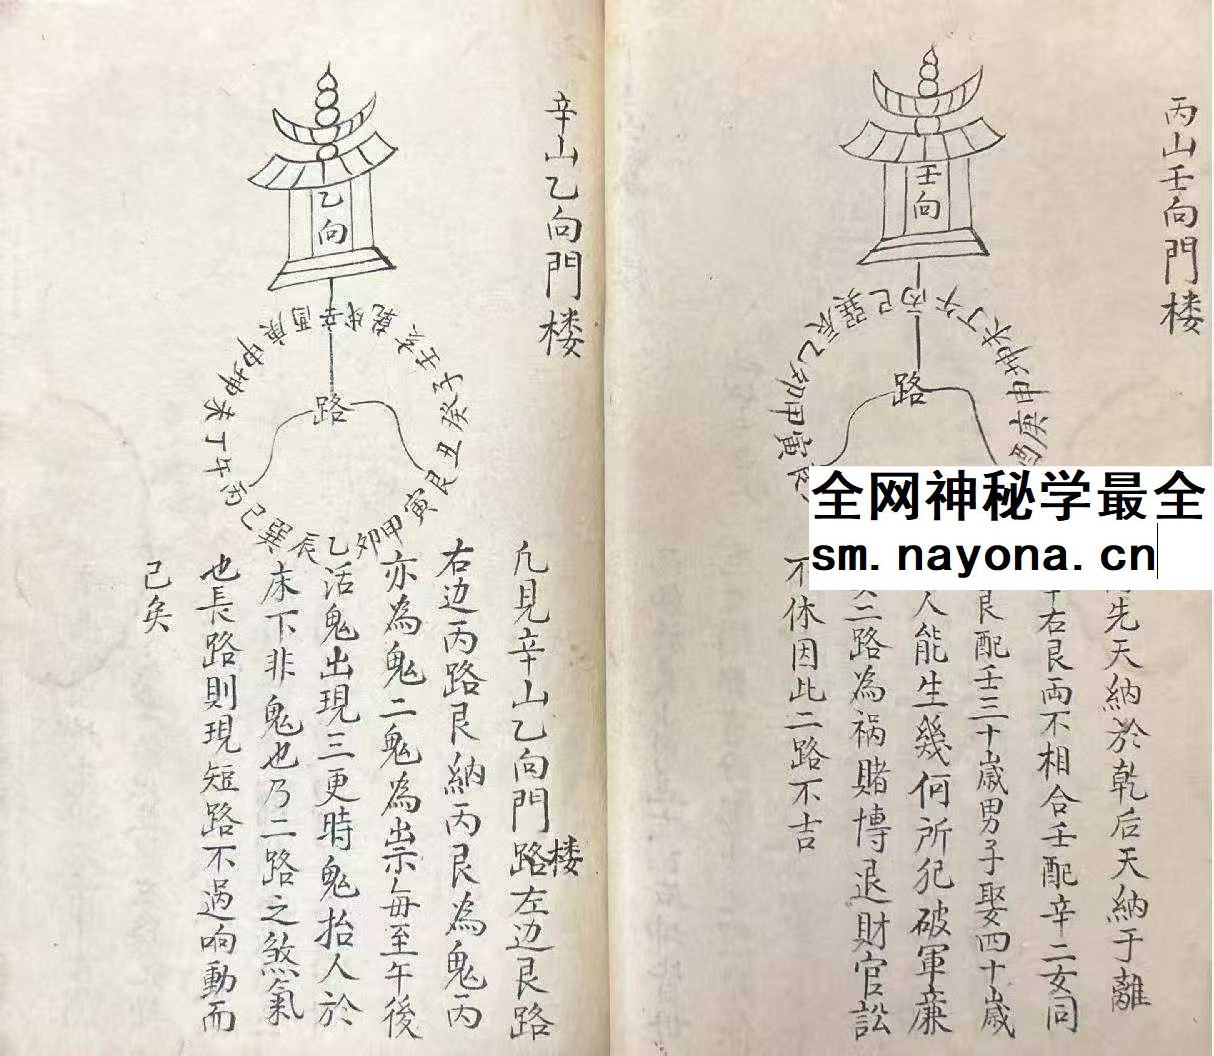 丙山壬向門楼
壬向
丙午丁未坤申庚酉
巳巽辰乙卯甲寅艮
路
先天納於乾后天納于離
右艮両不相合壬配辛二女同
艮配壬三十歳男子娶四十歳
人能生幾何所犯破軍廉
二路為禍賭博退財官訟
不休因此二路不吉
全网神秘学最全
sm.nayona.cn
辛山乙向門楼
乙向
辛戌乾亥壬子癸丑艮寅甲卯乙辰巽巳丙午丁未坤申庚酉
路
凢見辛山乙向門楼路左边艮路
右边丙路艮納丙艮為鬼丙
亦為鬼二鬼為祟每至午後
活鬼出現三更時鬼抬人於
床下非鬼也乃二路之煞氣
也長路則現短路不過响動而
已矣